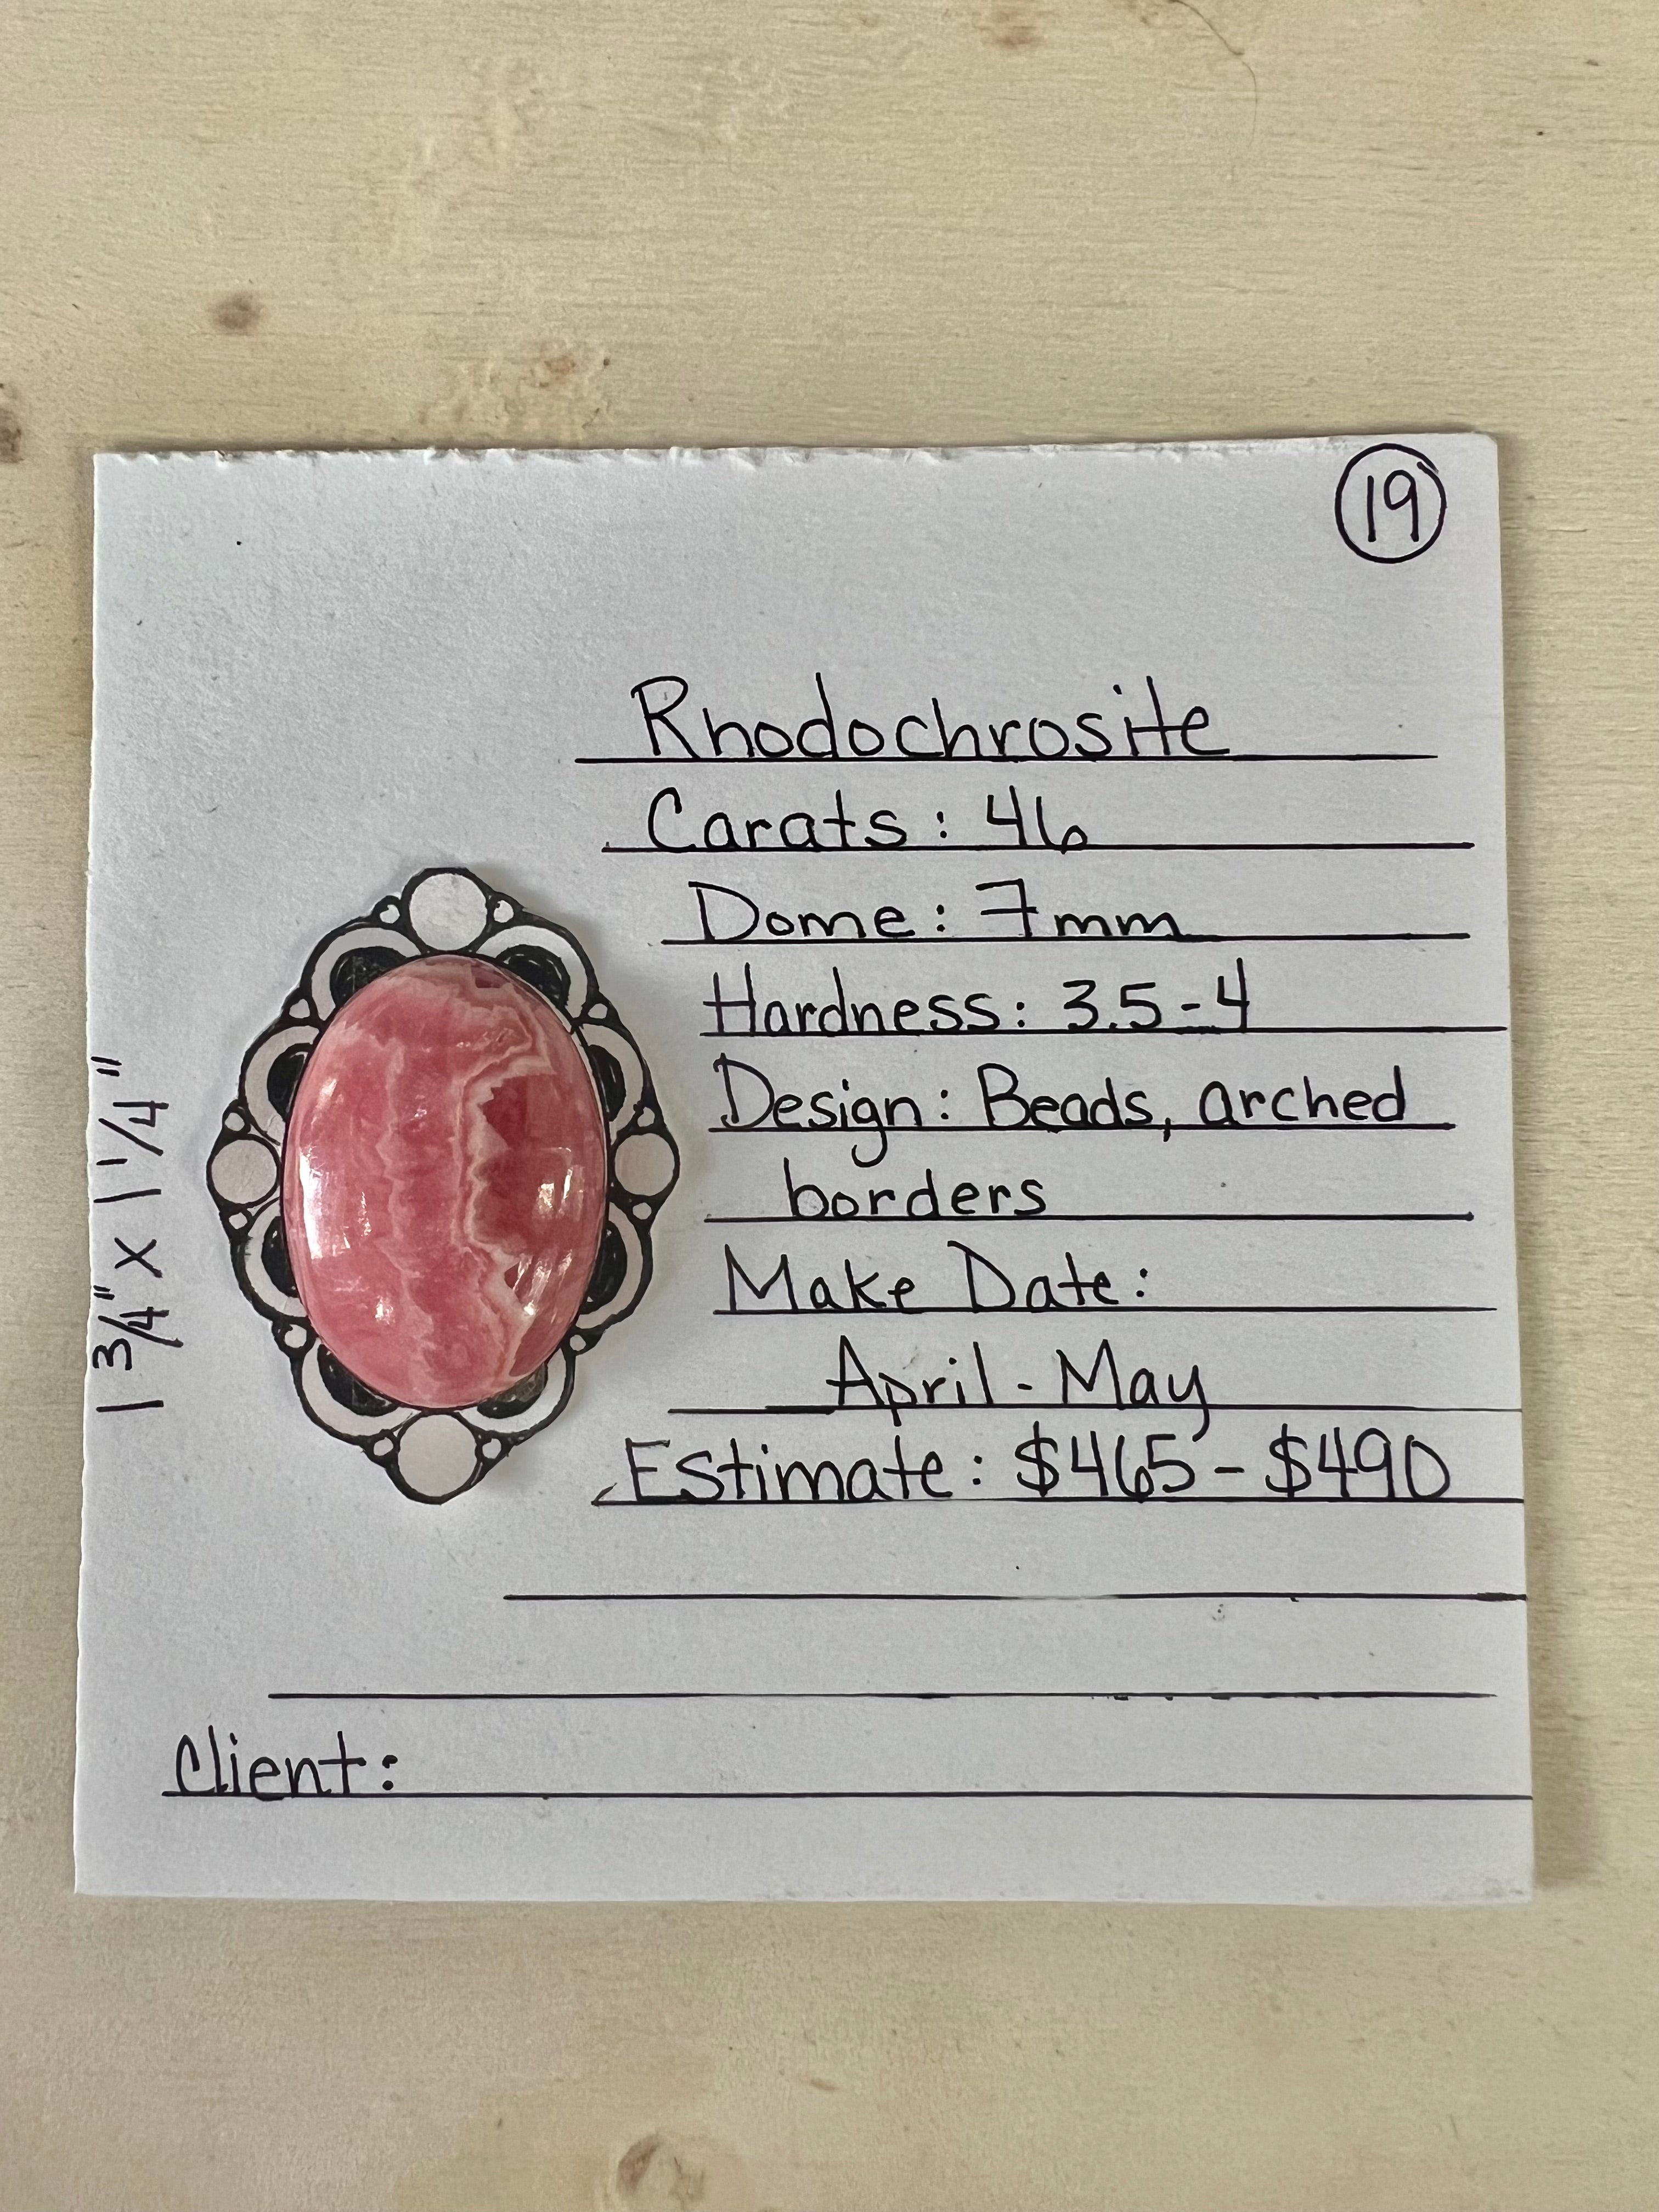 19
Rhodochrosite
Carats: 46
Dome: 7mm
Hardness: 3.5-4
Design: Beads, arched
borders
Make Date:
April - May
Estimate: $465 - $490
Client:
1 3/4" x 1 1/4"